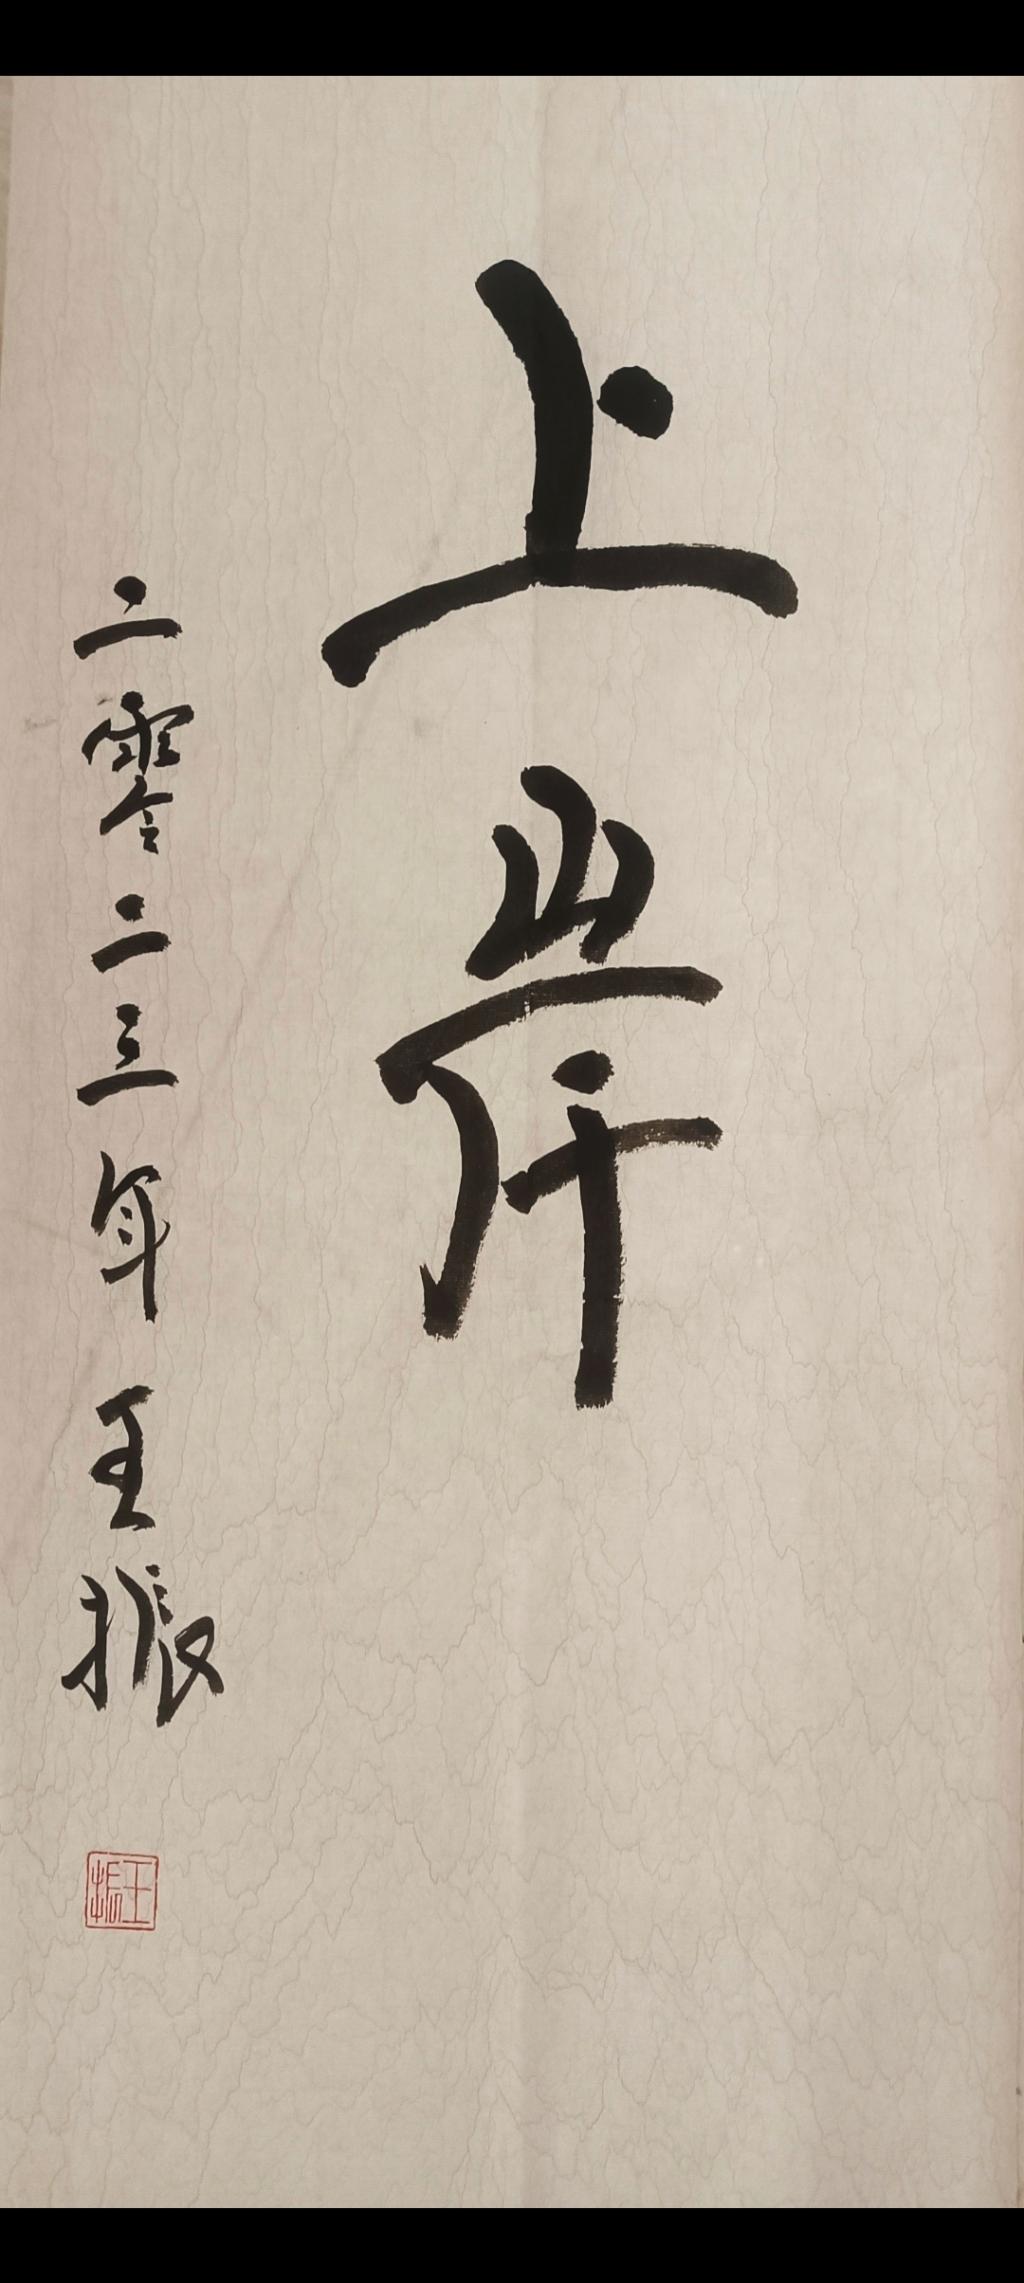 上岸
二零二三年王振
王振